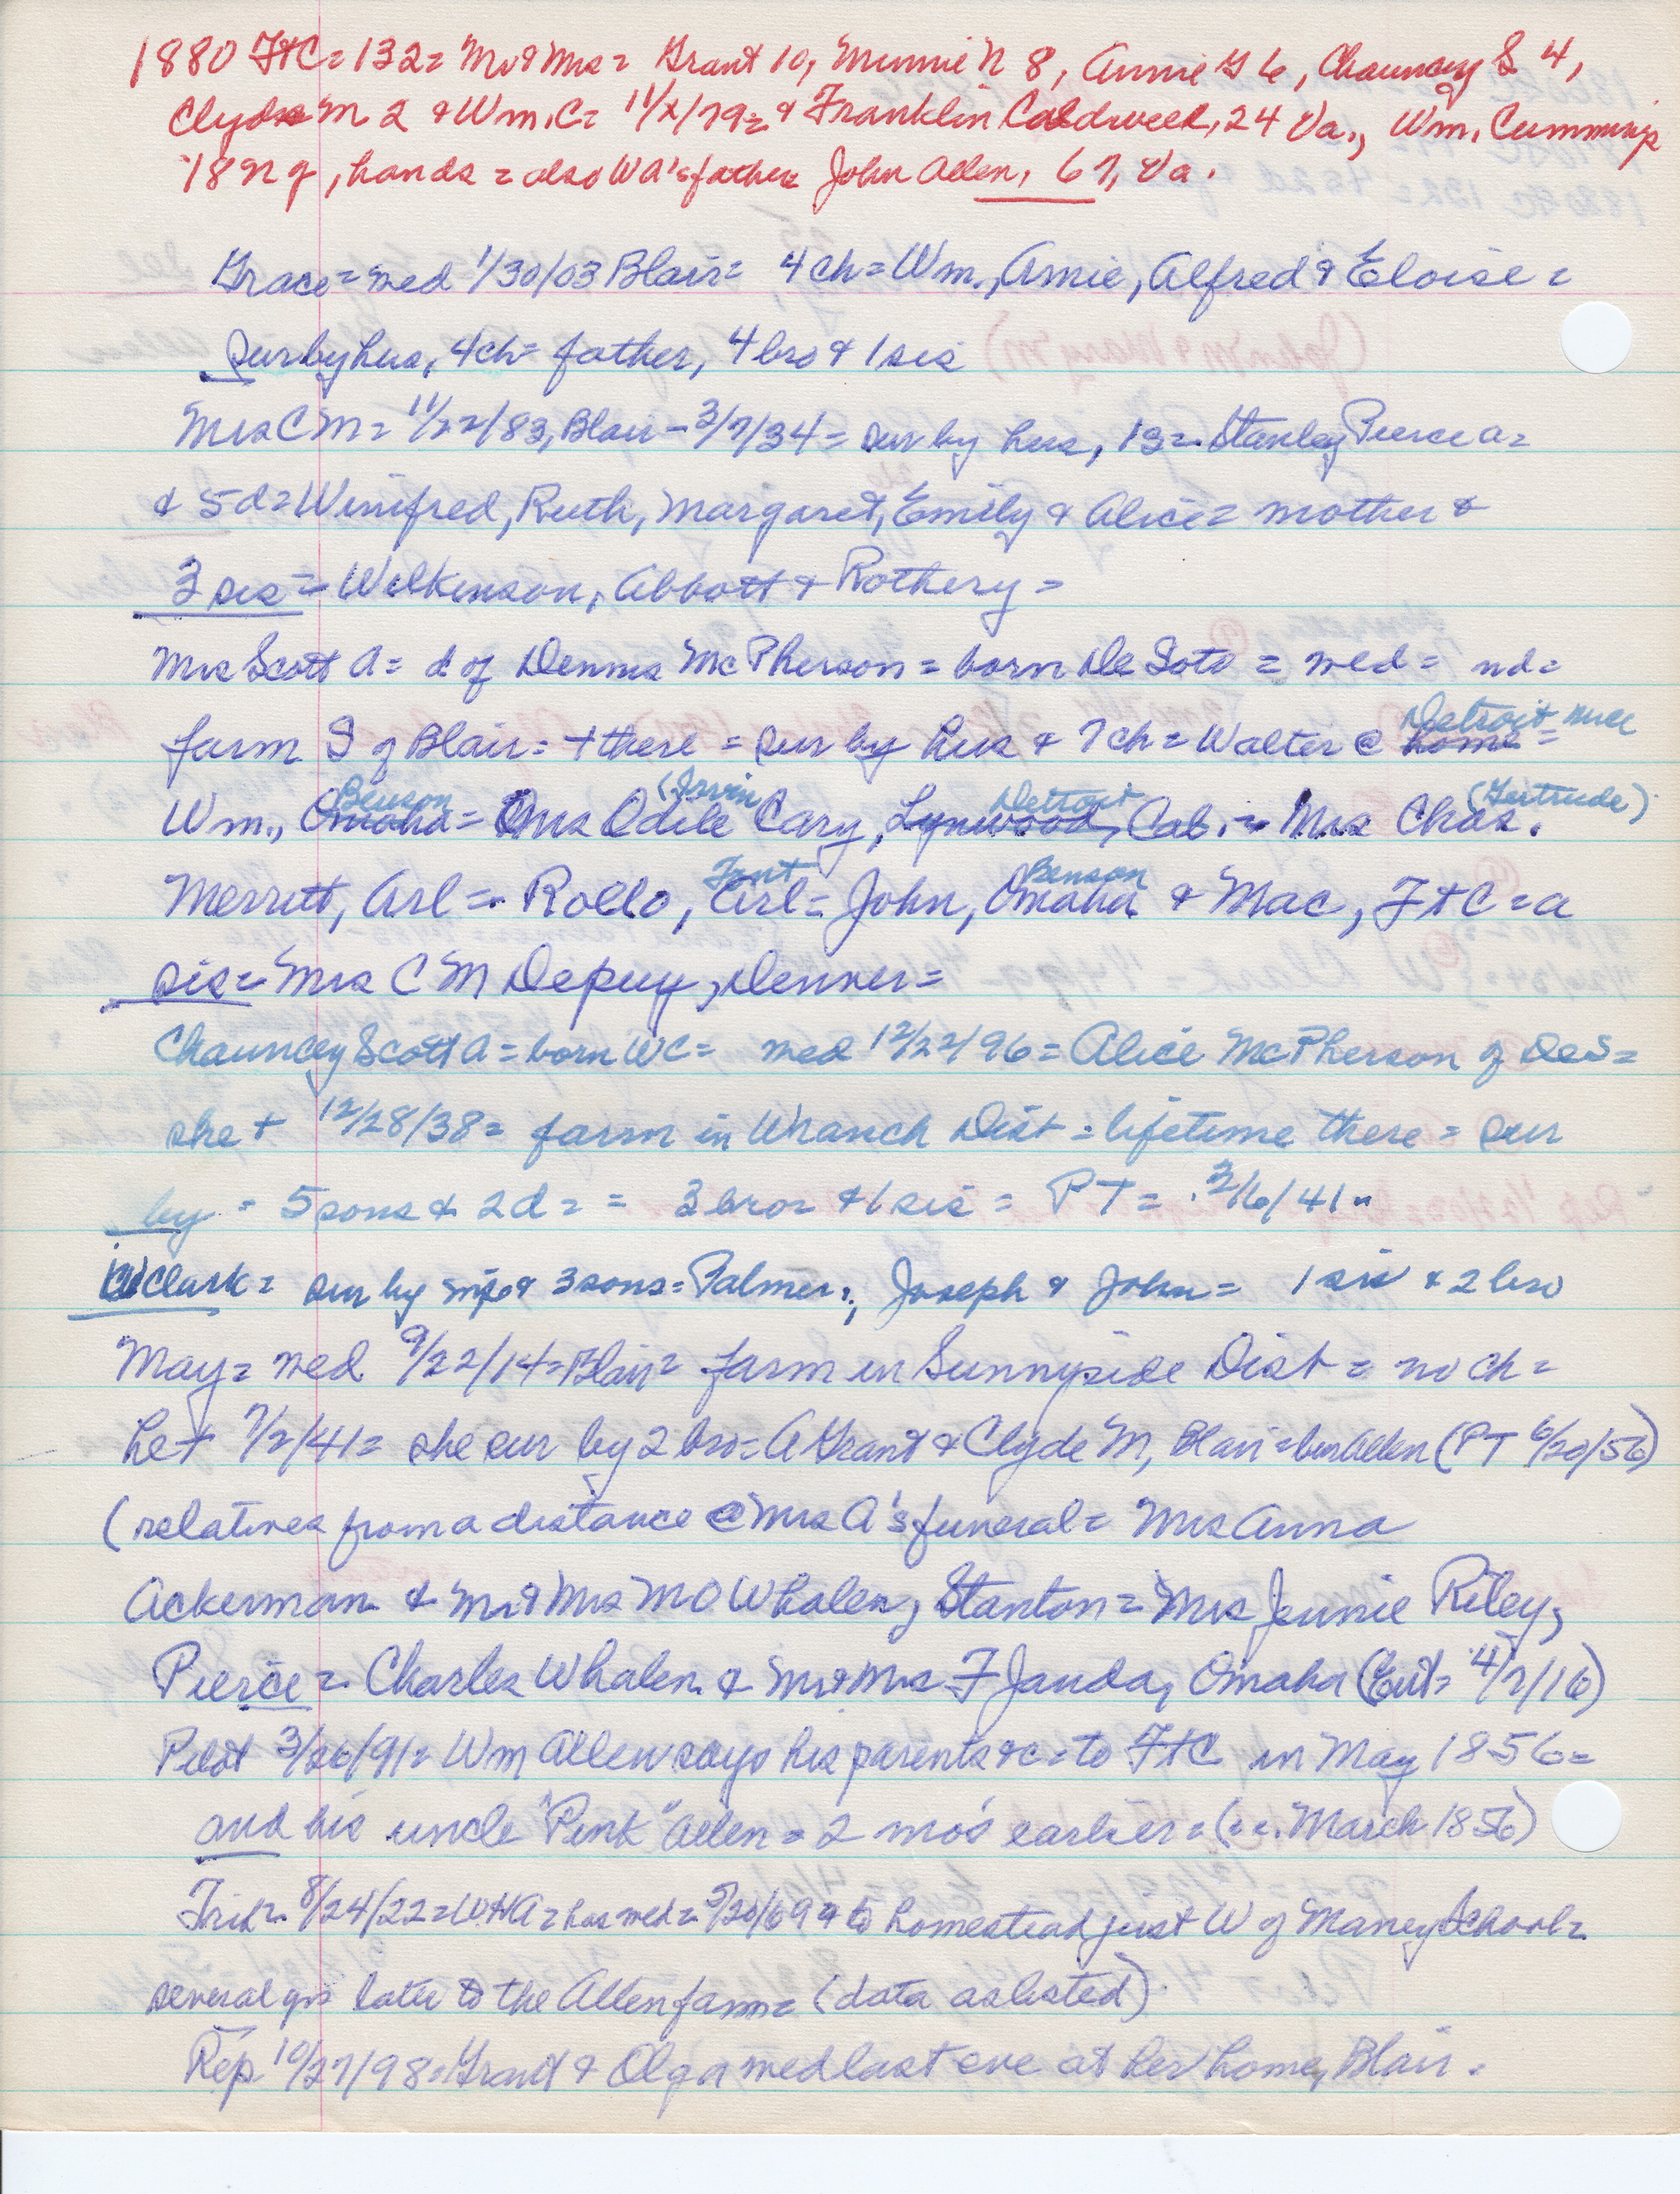 1880 FtC = 132 = Mr & Mrs = Grant 10, Minnie N 8, Annie G 6, Chauncey S 4,
Clyde M 2 & Wm. C = 11/X/79 = & Franklin Caldwell, 24 Va., Wm. Cummings
18 NY, hands = also WA's father John Allen, 67, Va.
Grace = med 1/30/03 Blair = 4 ch = Wm., Amie, Alfred & Eloise =
sur by hus, 4 ch = father, 4 bro & 1 sis
Mrs C M = 11/22/83, Blair - 3/7/34 = sur by hus, 1 s = Stanley Pierce A =
& 5 d = Winifred, Ruth, Margaret, Emily & Alice = mother &
3 sis = Wilkinson, Abbott & Rothery =
Mrs Scott A = d of Dennis McPherson = born De Soto = med = nd =
farm S of Blair = + there = sur by hus & 7 ch = Walter @ home = Detroit
Wm., Omaha Benson = Mrs Odile (Irvin Cary, Lynwood, Detroit Cal. = Mrs Chas. (Gertrude)
Merrett, Arl = Rollo, Arl = John, Omaha Benson & Mac, FtC = a
sis = Mrs C M Depuy, Denver =
Chauncey Scott A = born WC = med 12/22/96 = Alice McPherson of DeS =
she + 12/28/38 = farm in Dist = lifetime there = sur
by = 5 sons & 2 d = = 3 bro = & 1 sis = PT = 2/6/41
W Clark = sur by & 3 sons = Palmer, Joseph & John = 1 sis & 2 bro
May = med 9/22/14 = Blair = farm in Sunnyside Dist = no ch =
he + 7/2/41 = she sur by 2 bro = A Grant & Clyde M, Blair = bur Allen (PT 6/20/56)
(relatives from a distance @ Mrs A's funeral = Mrs Anna
Ackerman & Mr & Mrs M O Whalen, Stanton = Mrs Jennie Riley,
Pierce = Charles Whalen & Mr & Mrs F Janda, Omaha (Ent = 4/7/16)
Pilot 3/26/91 = Wm Allen says his parents &c = to FtC in May 1856 =
and his uncle "Pink" Allen = 2 mo's earlier = (i.e. March 1856)
Trib = 8/24/22 = WHA = has med = 5/20/69 = to homestead just W of Maney School =
several yrs later to the Allen farm = (data as listed)
Rep 10/27/98 = Grant & Olga med last eve at her home, Blair.